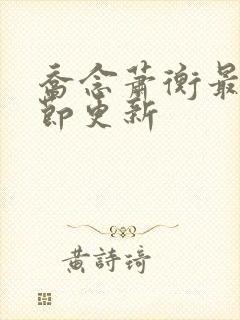 喬念蕭衡最
節更新
黃詩琦